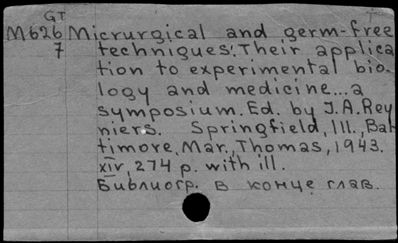 GT
M626 Micrurgical and germ-free
7 techniques: Their applica
tion to experimental bio-
logy and medicine...a
symposium. Ed. by J.A. Rey
niers. Springfield, Ill., Bal
timore, Mar., Thomas, 1943.
XIV, 274 p. with ill.
Библиогр. в конце глав.